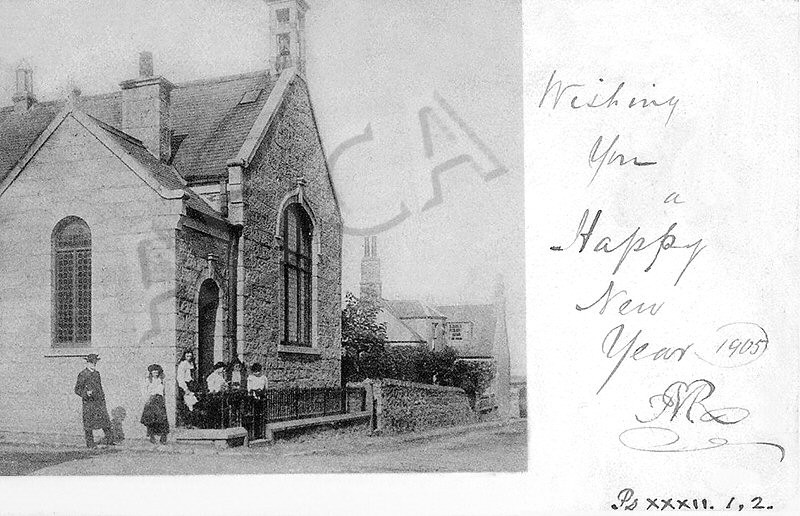 Wishing
You
a
Happy
New
Year 1905
Ps XXXII. 1, 2.